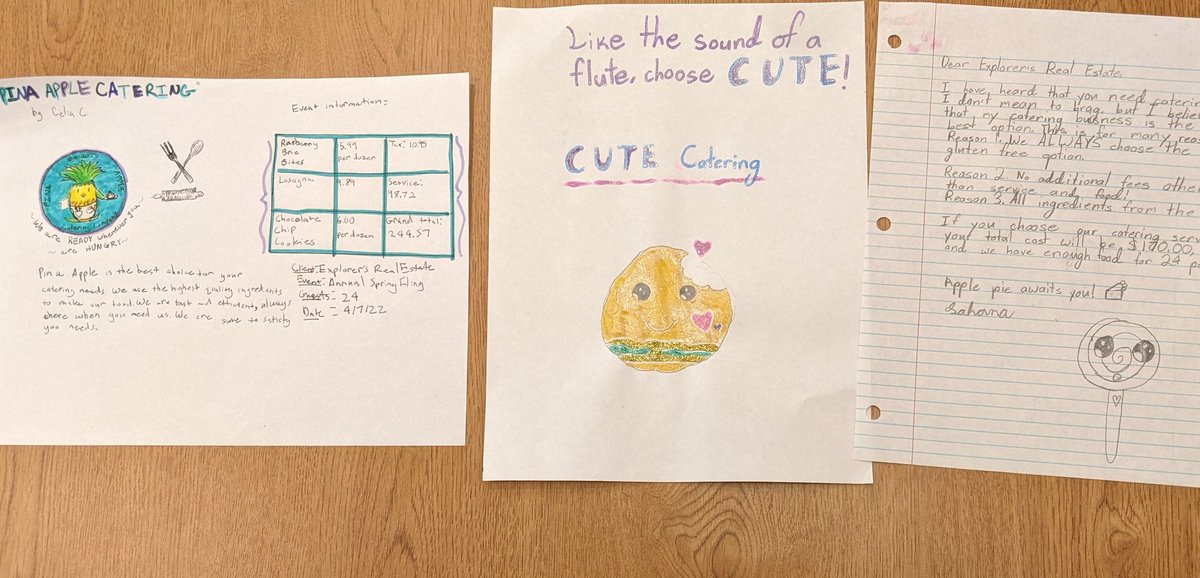 PINA APPLE CATERING
by Celia C.
PINA APPLE
Catering Company
~We are READY whenever you~
~are HUNGRY~
Pina Apple is the best choice for your
catering needs. We use the highest quality ingredients
to make our food. We are fast and efficient, always
there when you need us. We are sure to satisfy
you needs.
Event information:
Raspberry Brie Bites 5.99 per dozen Tax: 10.%
Lasagna 9.89 Service: 98.72
Chocolate Chip Cookies 6.00 per dozen Grand total: 244.57
Client: Explorer's Real Estate
Event: Annual Spring Fling
Guests - 24
Date - 4/7/22
Like the sound of a
flute, choose CUTE!
CUTE Catering
Dear Explorer's Real Estate,
I have heard that you need caterin
I don't mean to brag, but I believ
that my catering business is the
best option. This is for many reas
Reason 1. We ALWAYS choose the
gluten free option.
Reason 2. No additional fees other
than service and food!
Reason 3. All ingredients from the
If you choose our catering serv
your total cost will be $190.00,
and we have enough food for 24 p
Apple pie awaits you!
Sahana